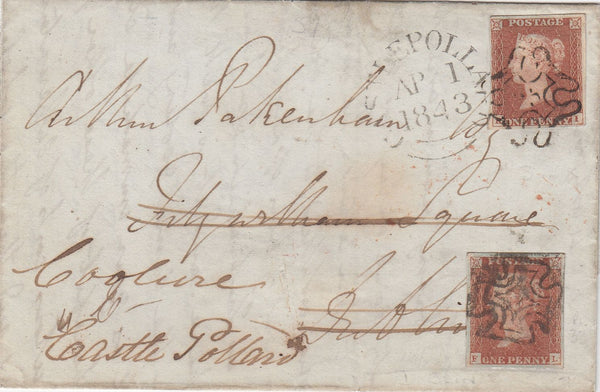 POSTAGE
ONE PENNY
CASTLEPOLLARD
AP 1
1843
Arthur Pakenham Esq
Fitzwilliam Square
Dublin
Coolure
Castle Pollard
F L
ONE PENNY